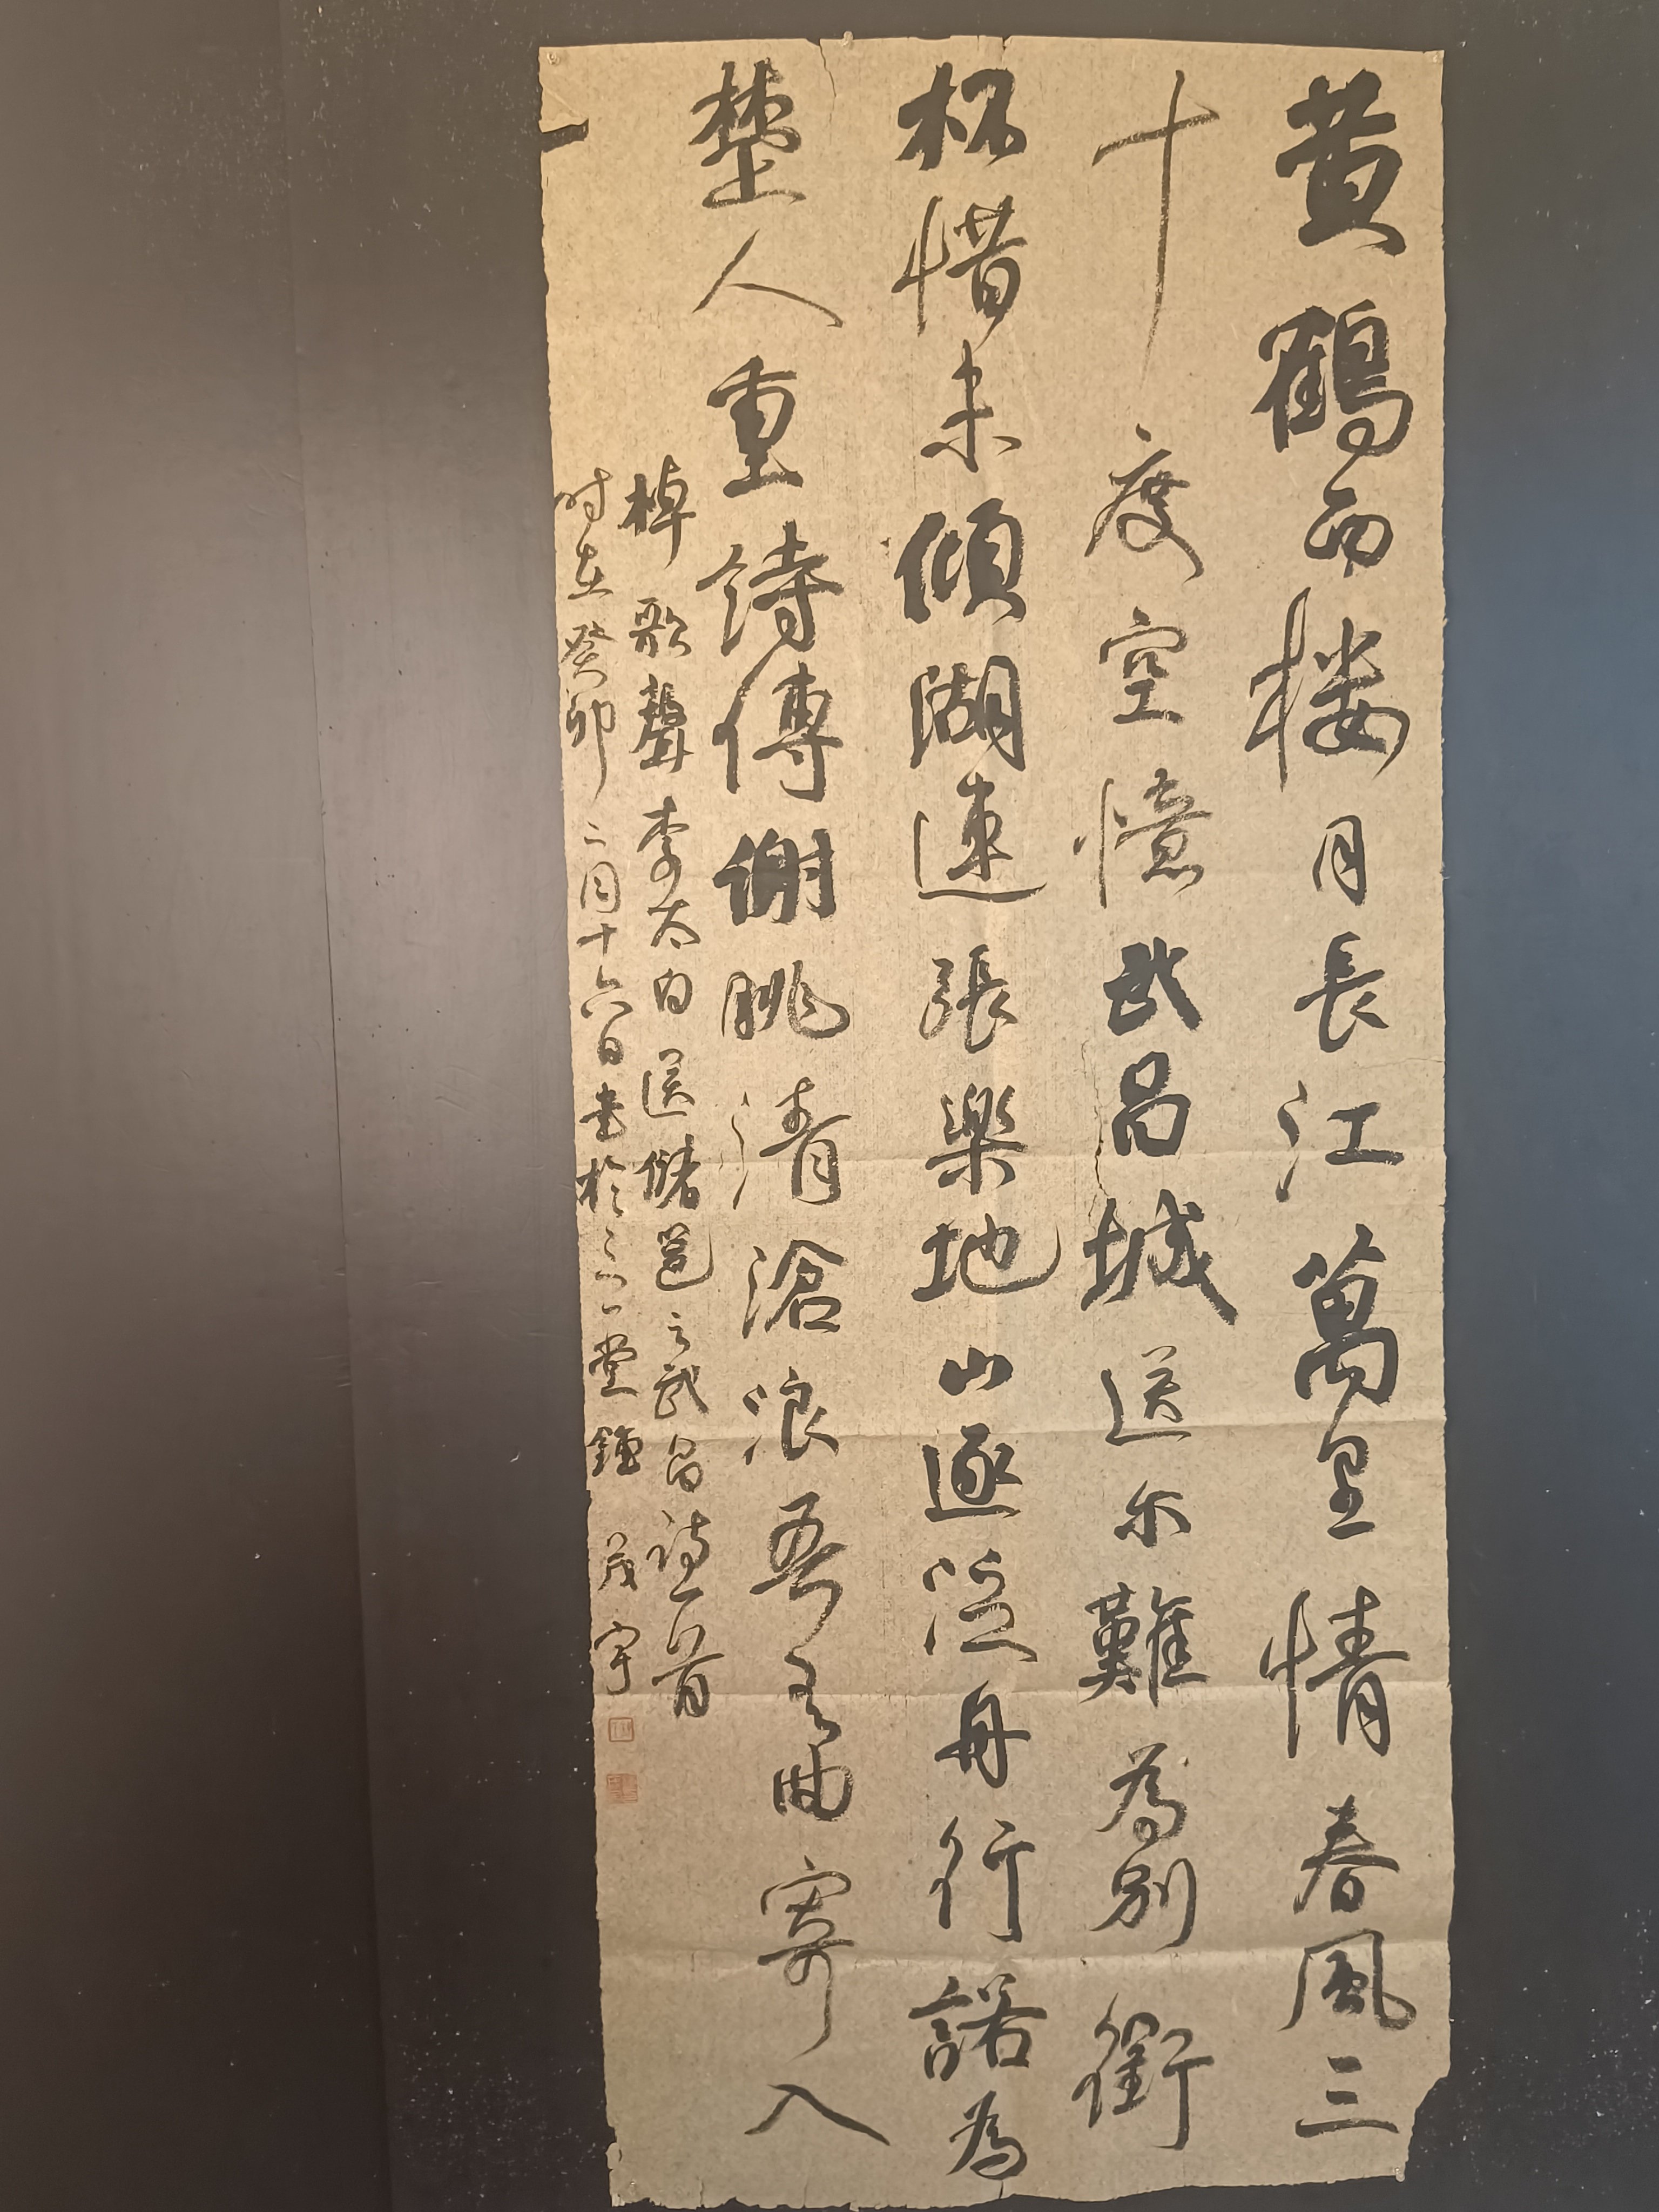 黄鶴西楼月長江萬里情春風三
十度空憶武昌城送尔難為別銜
杯惜未傾湖連張樂地山逐泛舟行諾為
楚人重詩傳謝朓清滄浪吾有曲寄入
棹歌聲李太白送儲邕之武昌詩一首
时在癸卯二月十六日書於三一堂鍾茂宇